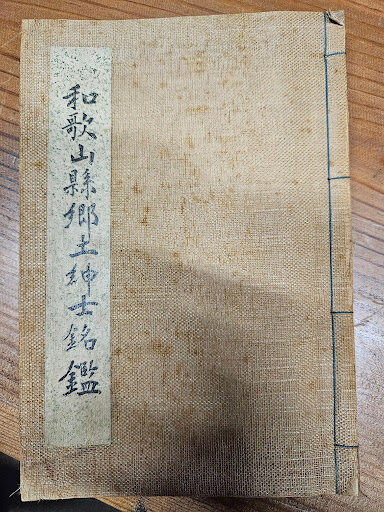 和歌山縣郷土紳士銘鑑